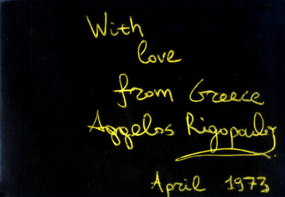 With
love
from Greece
Aggelos Rigopoulos
April 1973